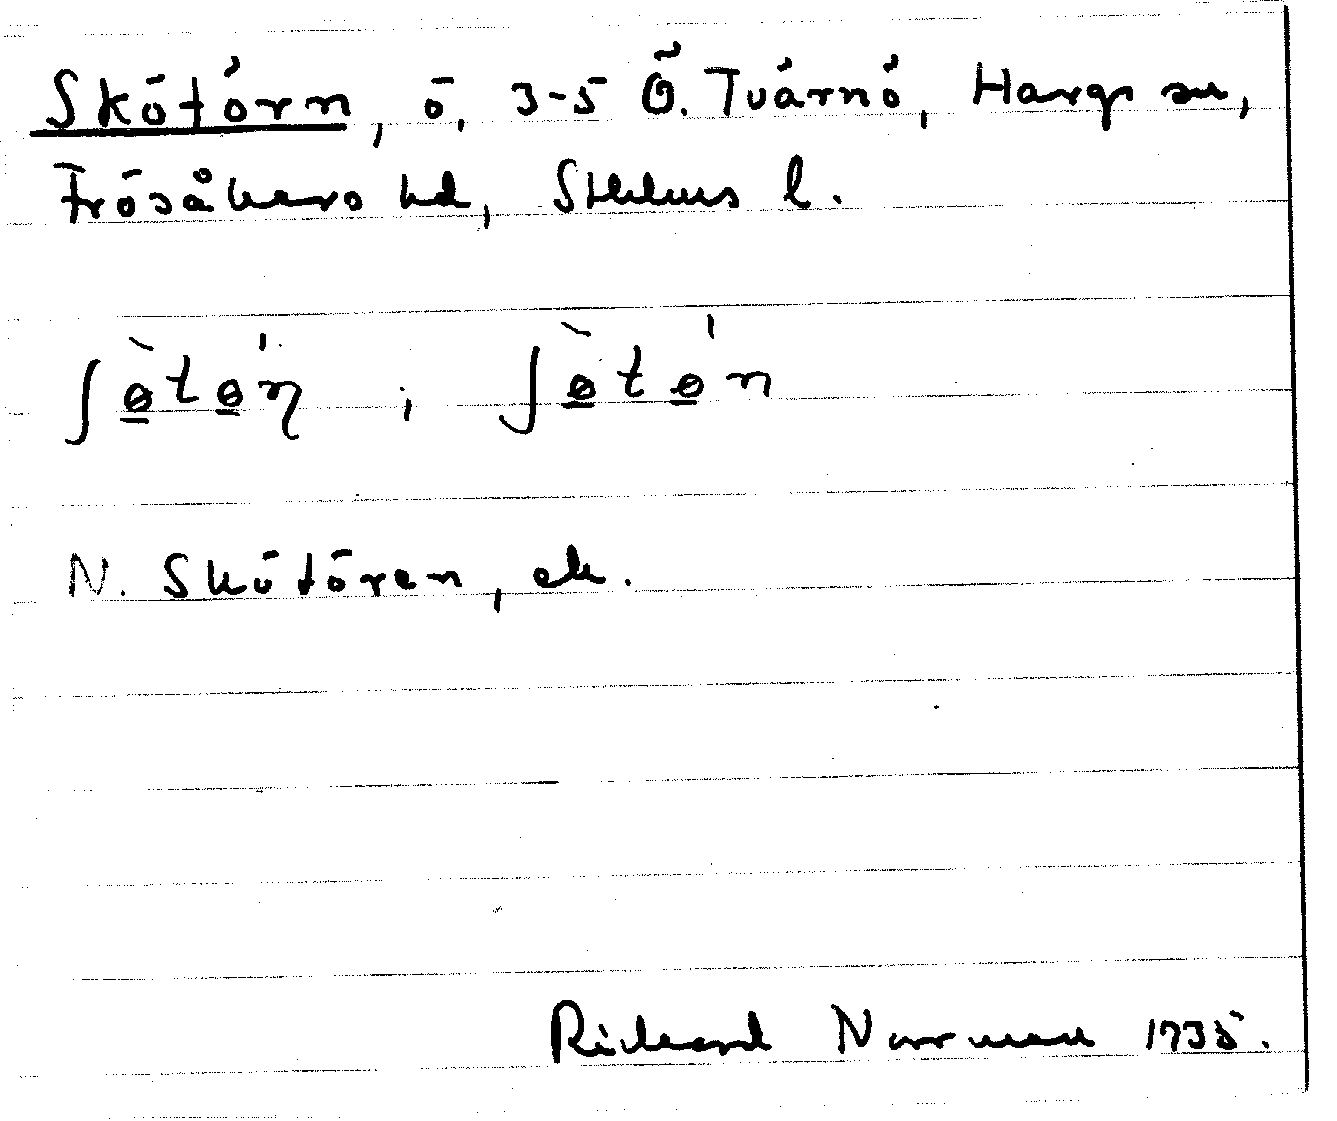 Skötörn, ö, 3-5 Ö. Tvärnö, Hargs sn,
Frösåkers hd, Sthlms l.
ʃɵ̠̀tɵ̠ˈɳ ; ʃɵ̠̀tɵ̠ˈn
N. Skötören, ek.
Rickard Norrman 1935.